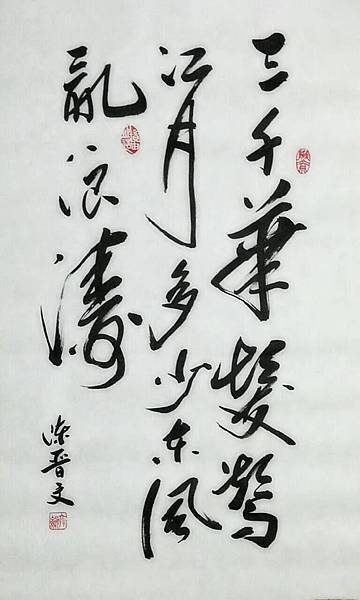 三千華髮驚
江月多少東風
亂浪濤
梁晉文